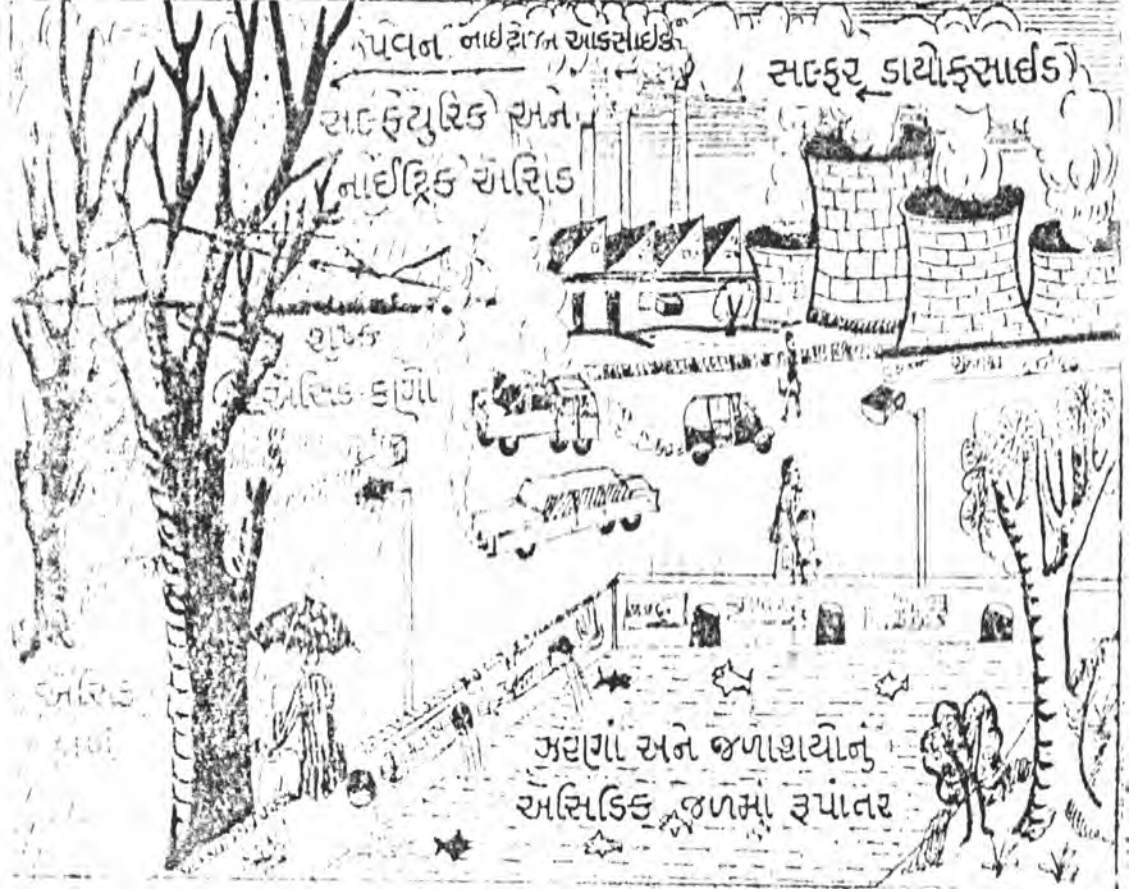 પવન નાઈટ્રોજન ઓકસાઈડ
સલ્ફર ડાયોકસાઈડ
સલ્ફ્યુરિક અને
નાઈટ્રિક એસિડ
શુષ્ક
એસિડ કણો
એસિડ
ઝરણાં અને જળાશયોનું
એસિડિક જળમાં રૂપાંતર